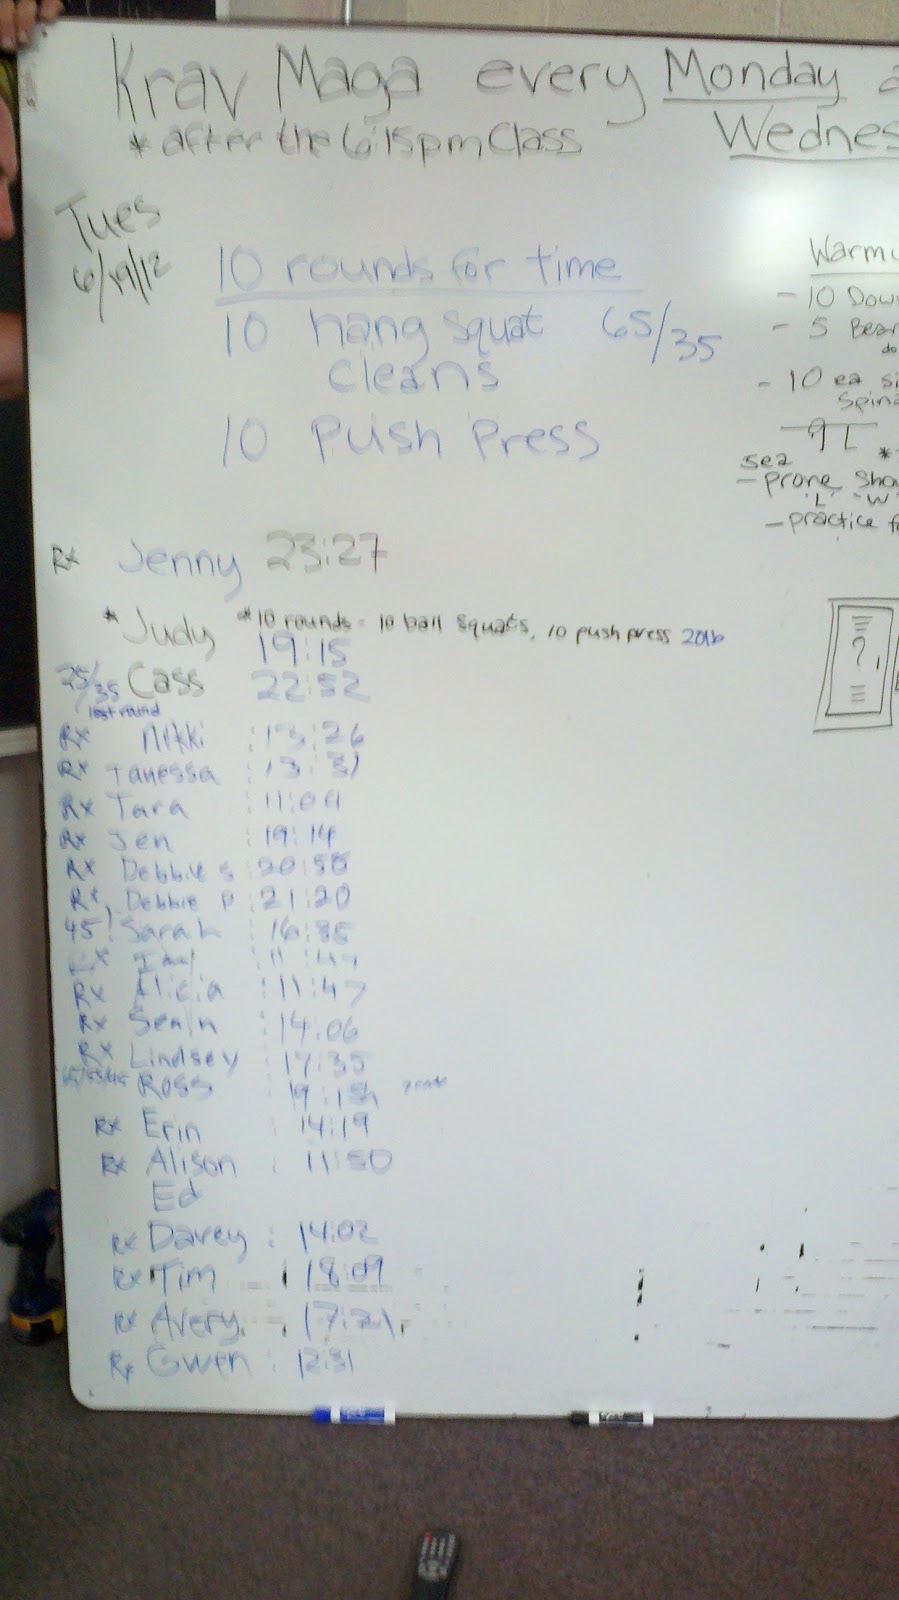 Krav Maga every Monday
* after the 6:15pm Class
Wednes
Tues
6/19/12
10 rounds for time
10 hang squat 65/35
cleans
10 Push Press
Warmu
- 10 Dow
- 5 Bear
do
- 10 ea si
Spina
se2
- prone sho
"L" "W"
- practice f
Rx Jenny 23:27
* Judy *10 rounds - 10 ball squats, 10 push press 20lb
19:15
25/35 Cass 22:52
last round
Rx Nikki : 13:26
Rx Tanessa : 13:31
Rx Tara : 11:04
Rx Jen : 19:14
Rx Debbie S : 20:50
Rx Debbie P : 21:20
45 Sarah : 16:35
Rx
Rx Alicia : 11:47
Rx Sean : 14:06
Rx Lindsey : 17:35
Ross
Rx Erin 14:19
Rx Alison : 11:50
Ed
Rx Davey : 14:02
Rx Tim : 18:09
Rx Avery : 17:21
Rx Gwen : 12:31